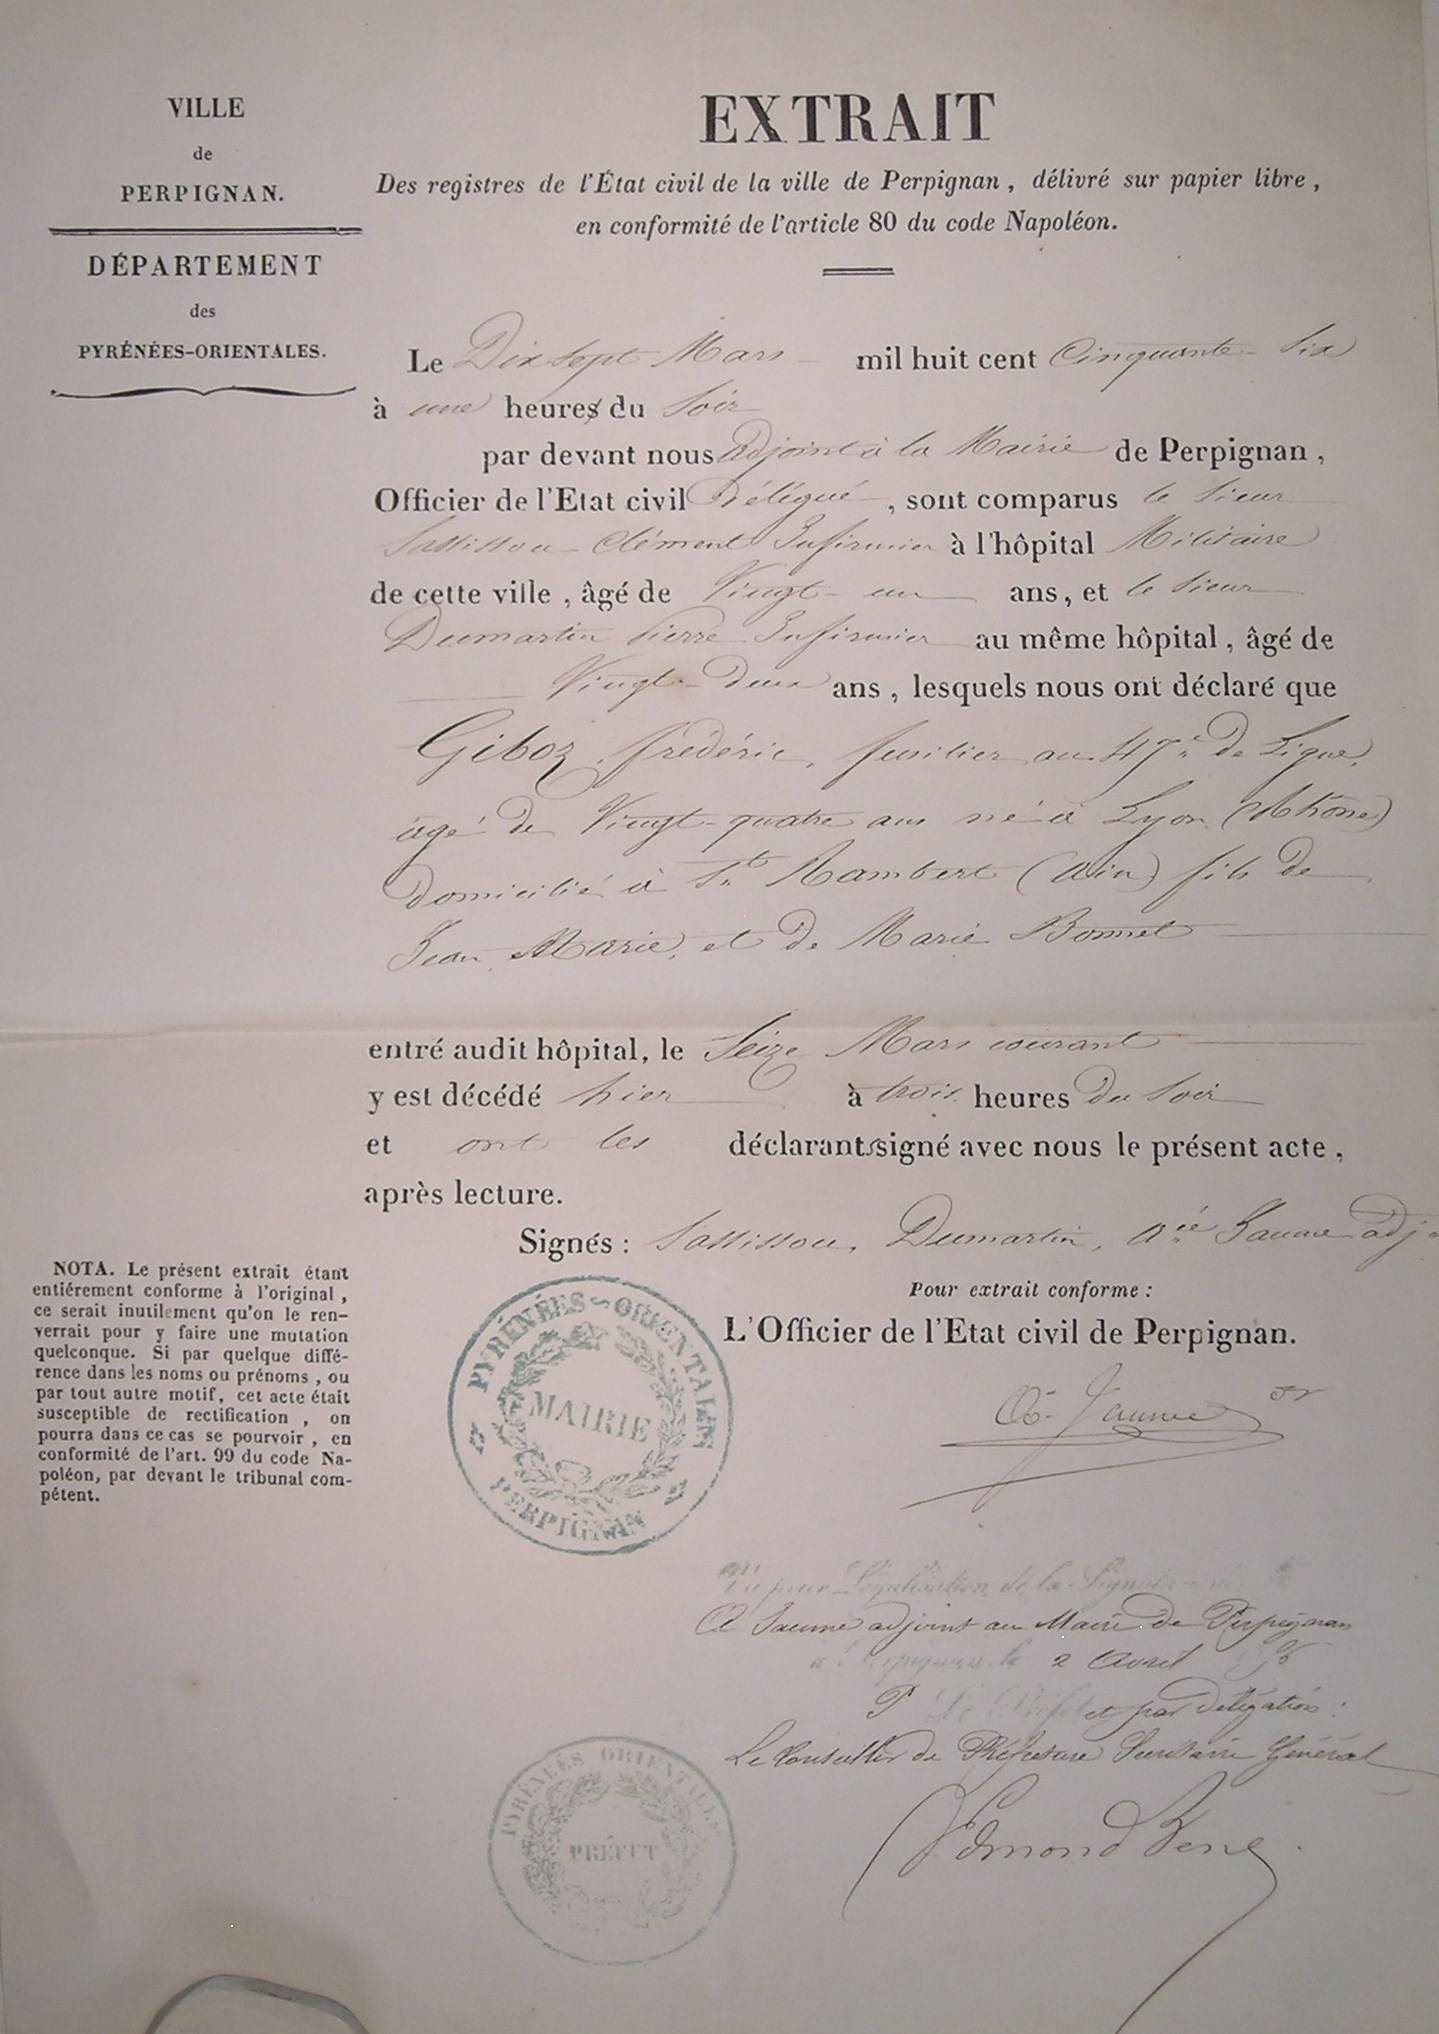 VILLE
de
PERPIGNAN.
DÉPARTEMENT
des
PYRÉNÉES-ORIENTALES.
EXTRAIT
Des registres de l'État civil de la ville de Perpignan, délivré sur papier libre,
en conformité de l'article 80 du code Napoléon.
Le Dix sept Mars mil huit cent Cinquante-Six
à une heures du Soir
par devant nous adjoint à la Mairie de Perpignan,
Officier de l'Etat civil Délégué, sont comparus le Sieur
Sassissou Clément Infirmier à l'hôpital Militaire
de cette ville, âgé de Vingt-un ans, et le Sieur
Dumartin Pierre Infirmier au même hôpital, âgé de
Vingt-deux ans, lesquels nous ont déclaré que
Giboz frédéric, fusilier au 47e de Ligne,
âgé de Vingt-quatre ans né à Lyon (Rhône)
domicilié à St Rambert (Ain) fils de
Jean Marie, et de Marie Bonnet
entré audit hôpital, le Seize Mars courant
y est décédé hier à trois heures du Soir
et ont les déclarants signé avec nous le présent acte,
après lecture.
Signés : Sassissou, Dumartin, Jaume adj
Pour extrait conforme :
L'Officier de l'Etat civil de Perpignan.
Jaume
NOTA. Le présent extrait étant
entiérement conforme à l'original,
ce serait inutilement qu'on le ren-
verrait pour y faire une mutation
quelconque. Si par quelque diffé-
rence dans les noms ou prénoms, ou
par tout autre motif, cet acte était
susceptible de rectification, on
pourra dans ce cas se pourvoir, en
conformité de l'art. 99 du code Na-
poléon, par devant le tribunal com-
pétent.
PYRÉNÉES-ORIENTALES
MAIRIE
PERPIGNAN
Vu pour Légalisation de la Signature de
Jaume adjoint au Maire de Perpignan
à Perpignan le 2 Avril
P Le Préfet et par délégation :
Le Conseiller de Préfecture Secrétaire Général
Edmond
PYRÉNÉES ORIENTALES
PRÉFET